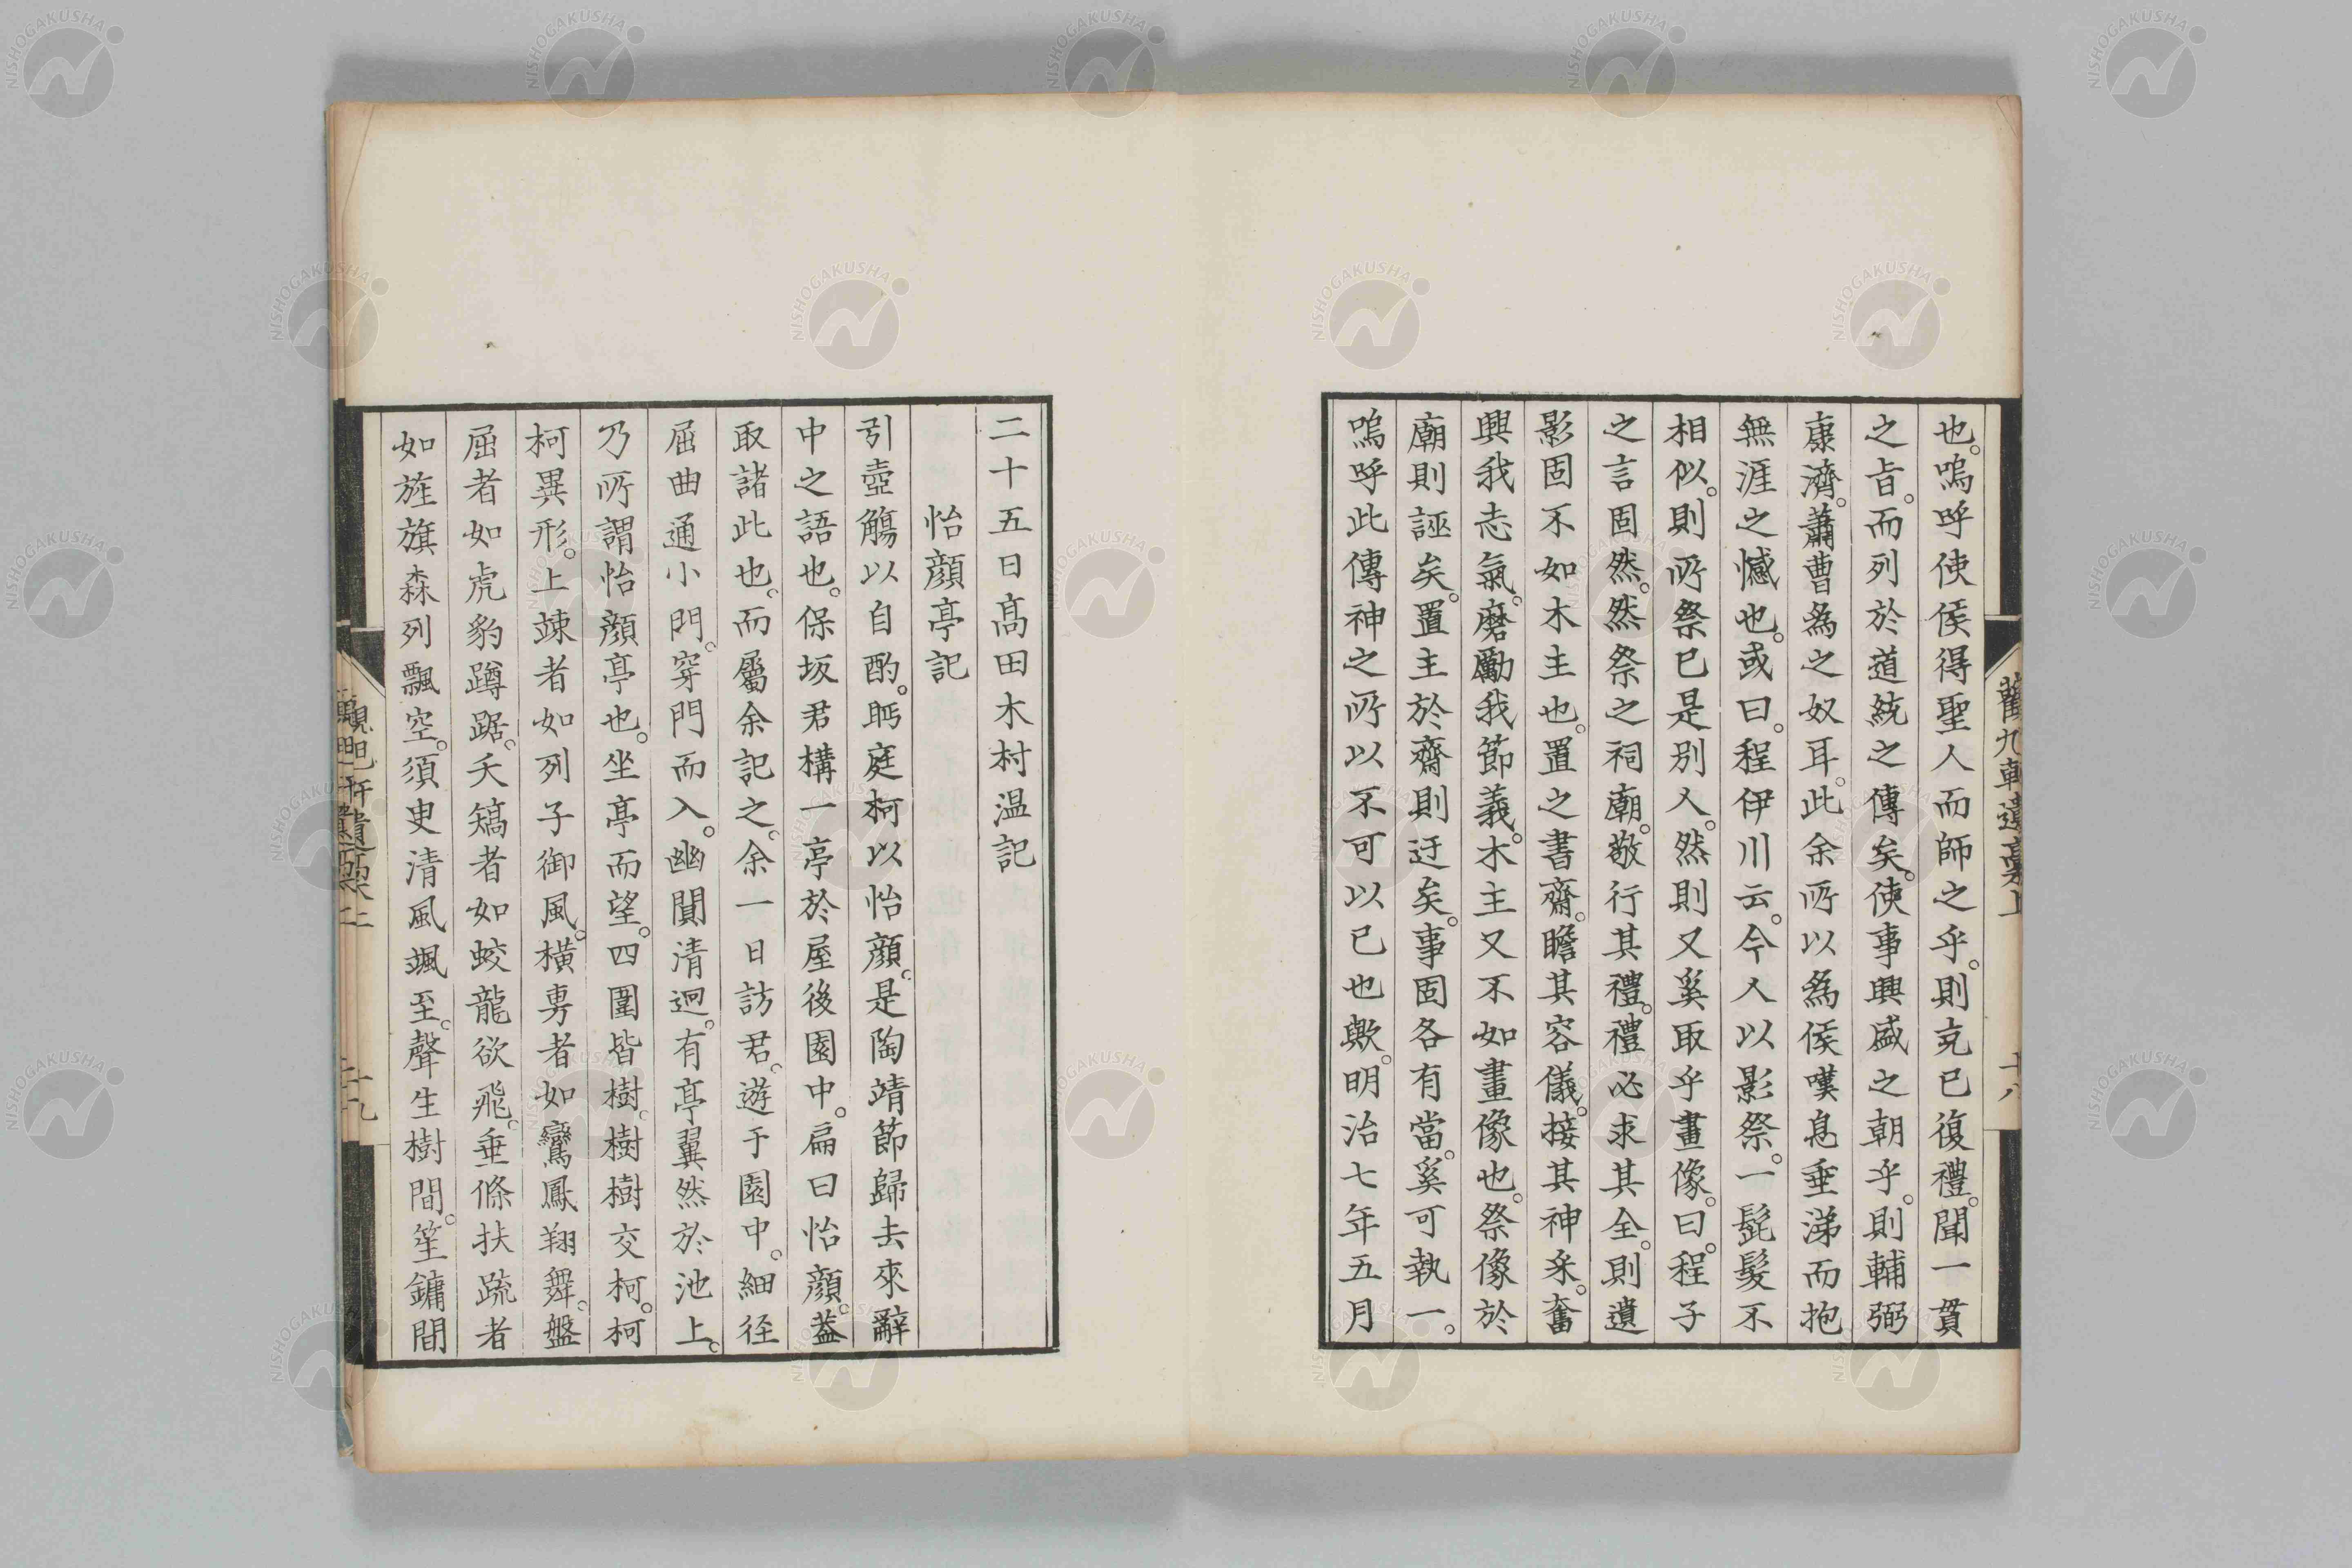 也。嗚呼使侯得聖人而師之乎。則克已復禮。聞一貫
之旨。而列於道統之傳矣。使事興盛之朝乎。則輔弼
康濟。蕭曹為之奴耳。此余所以為侯嘆息垂涕而抱
無涯之憾也。或曰。程伊川云。今人以影祭。一髭髮不
相似。則所祭已是別人。然則又奚取乎畫像。曰。程子
之言固然。然祭之祠廟。敬行其禮。禮必求其全。則遺
影固不如木主也。置之書齋。瞻其容儀。接其神采。奮
興我志氣。磨勵我節義。木主又不如畫像也。祭像於
廟則誣矣。置主於齋則迂矣。事固各有當。奚可執一。
嗚呼此傳神之所以不可以已也歟。明治七年五月
二十五日髙田木村温記
怡顔亭記
引壺觴以自酌。眄庭柯以怡顔。是陶靖節歸去來辭
中之語也。保坂君構一亭於屋後園中。扁曰怡顔。葢
取諸此也。而屬余記之。余一日訪君。遊于園中。細径
屈曲通小門。穿門而入。幽閴清迥。有亭翼然於池上。
乃所謂怡顔亭也。坐亭而望。四圍皆樹。樹樹交柯。柯
柯異形。上竦者如列子御風。橫専者如鸞鳳翔舞。盤
屈者如虎豹蹲踞。夭矯者如蛟龍欲飛。垂條扶疏者
如旌旗森列飄空。須臾清風颯至。聲生樹間。笙鏞間